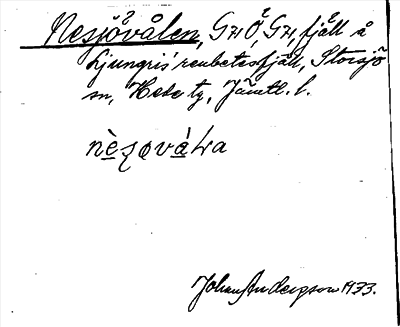 Nesjövålen, GzÖ, Gz, fjäll å
Ljungris renbetesfjäll, Storsjö
sn, Hede tg, Jämtl. l.
nèsøvàLa
Johan Anderzson 1933.